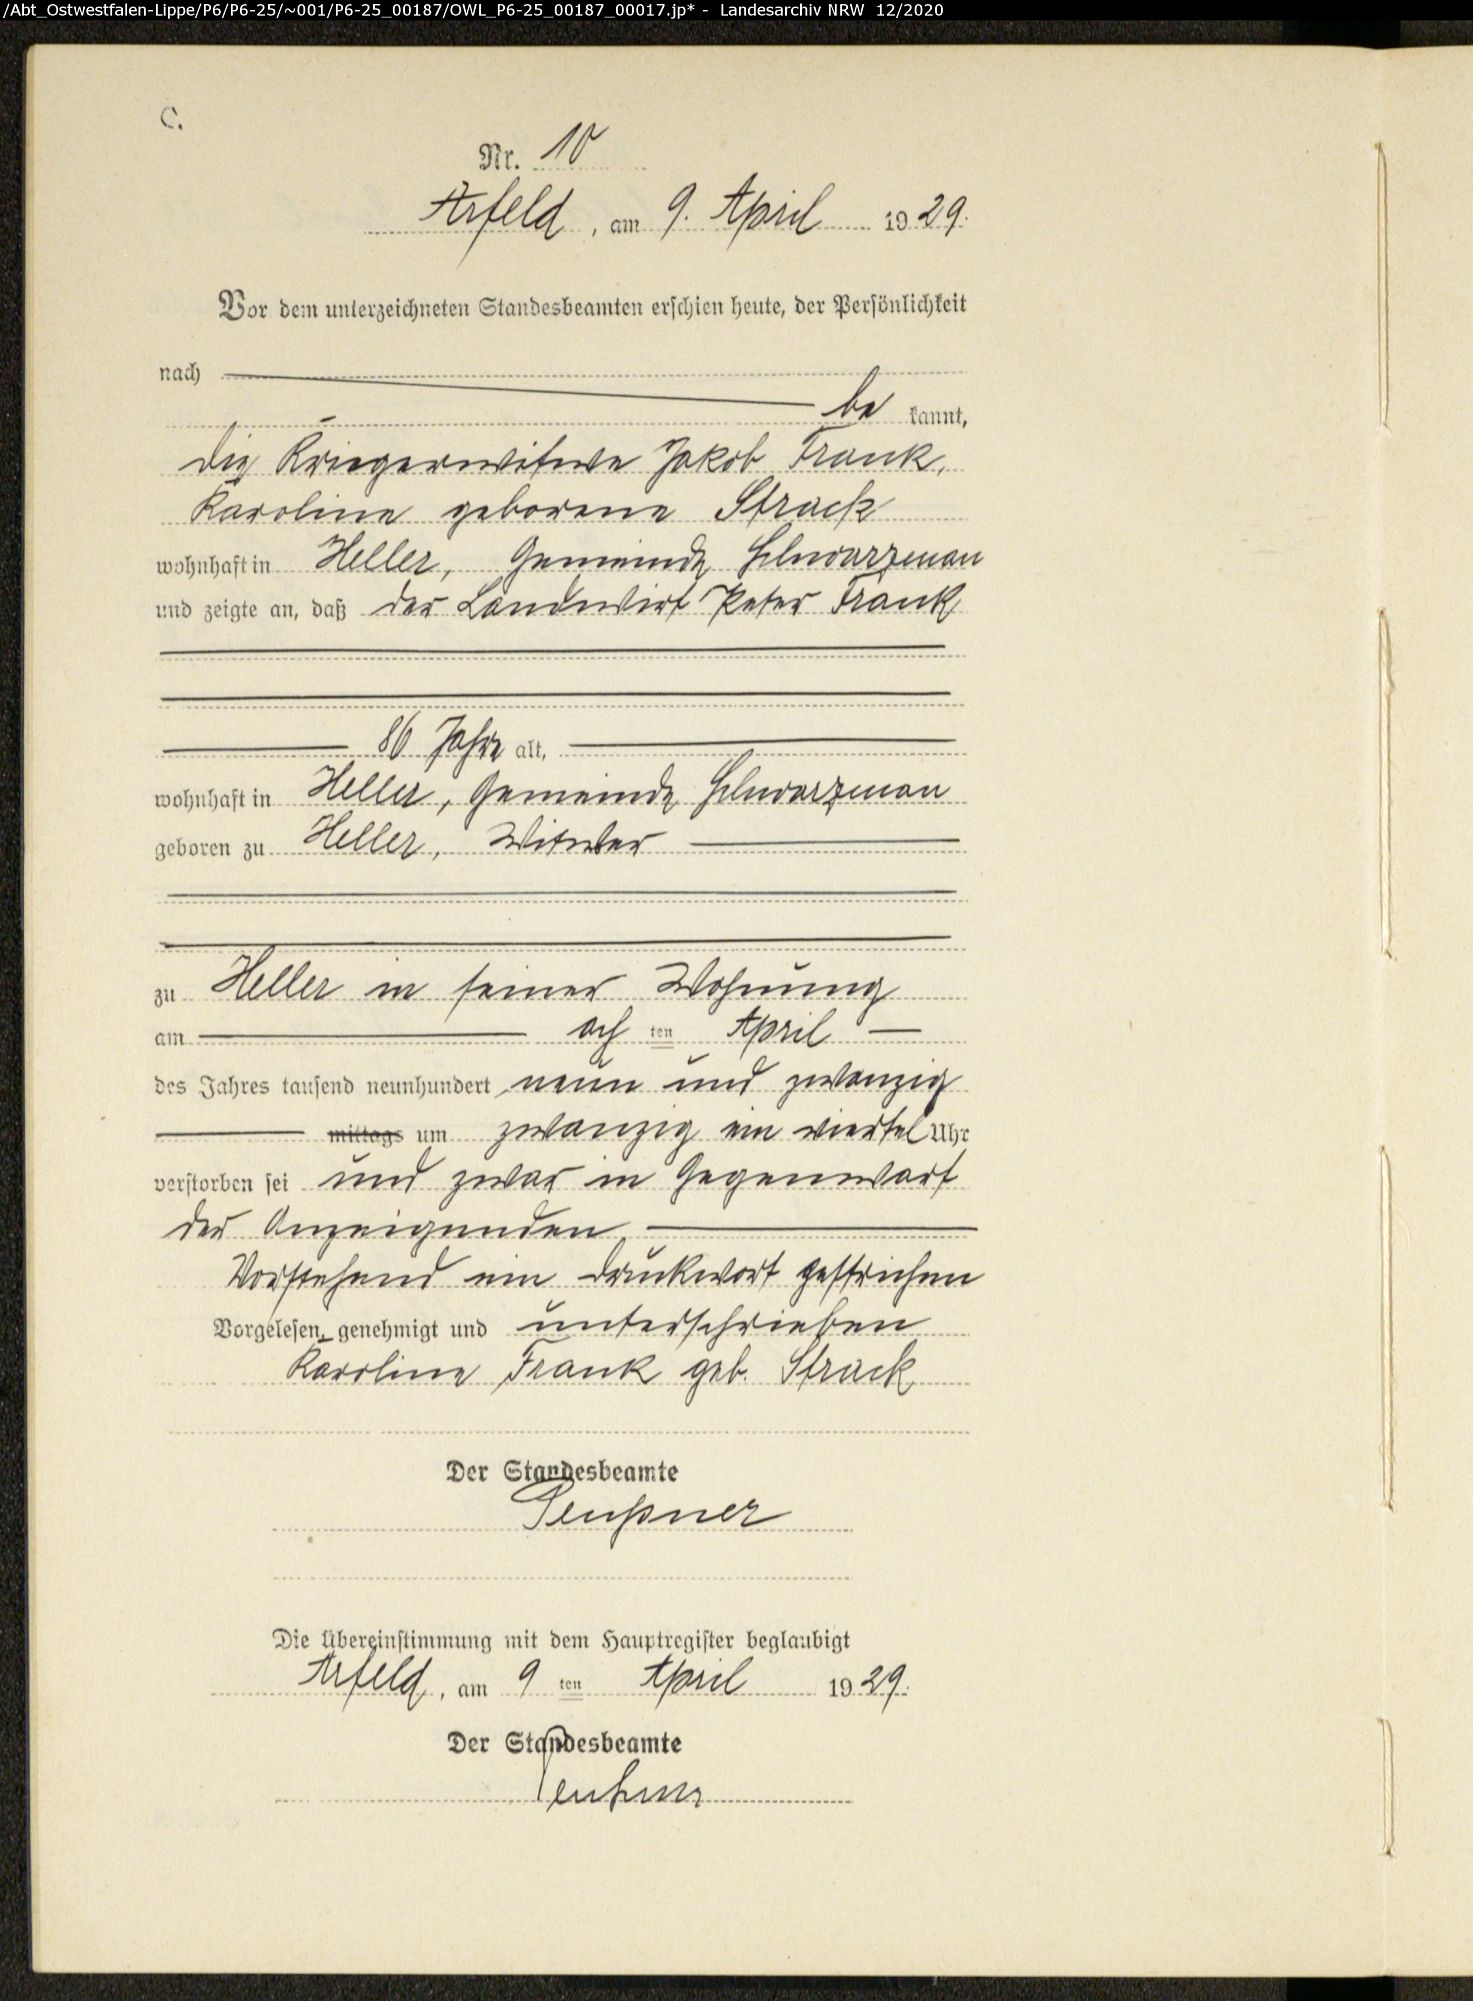 /Abt_Ostwestfalen-Lippe/P6/P6-25/~001/P6-25_00187/OWL_P6-25_00187_00017.jp* - Landesarchiv NRW 12/2020
C.
Nr. 10
Arfeld, am 9. April 1929.
Vor dem unterzeichneten Standesbeamten erschien heute, der Persönlichkeit
nach
be kannt,
die Kriegerwitwe Jakob Frank,
Karoline geborene Strack
wohnhaft in Heller, Gemeinde Schwarzenau
und zeigte an, daß der Landwirt Peter Frank
86 Jahre alt,
wohnhaft in Heller, Gemeinde Schwarzenau
geboren zu Heller, Witwer
zu Heller in seiner Wohnung
am ach ten April
des Jahres tausend neunhundert neun und zwanzig
mittags um zwanzig ein viertel Uhr
verstorben sei und zwar in Gegenwart
der Anzeigenden
Vorstehend ein Druckwort gestrichen
Vorgelesen, genehmigt und unterschrieben
Karoline Frank geb. Strack
Der Standesbeamte
Die Übereinstimmung mit dem Hauptregister beglaubigt
Arfeld, am 9 ten April 1929.
Der Standesbeamte